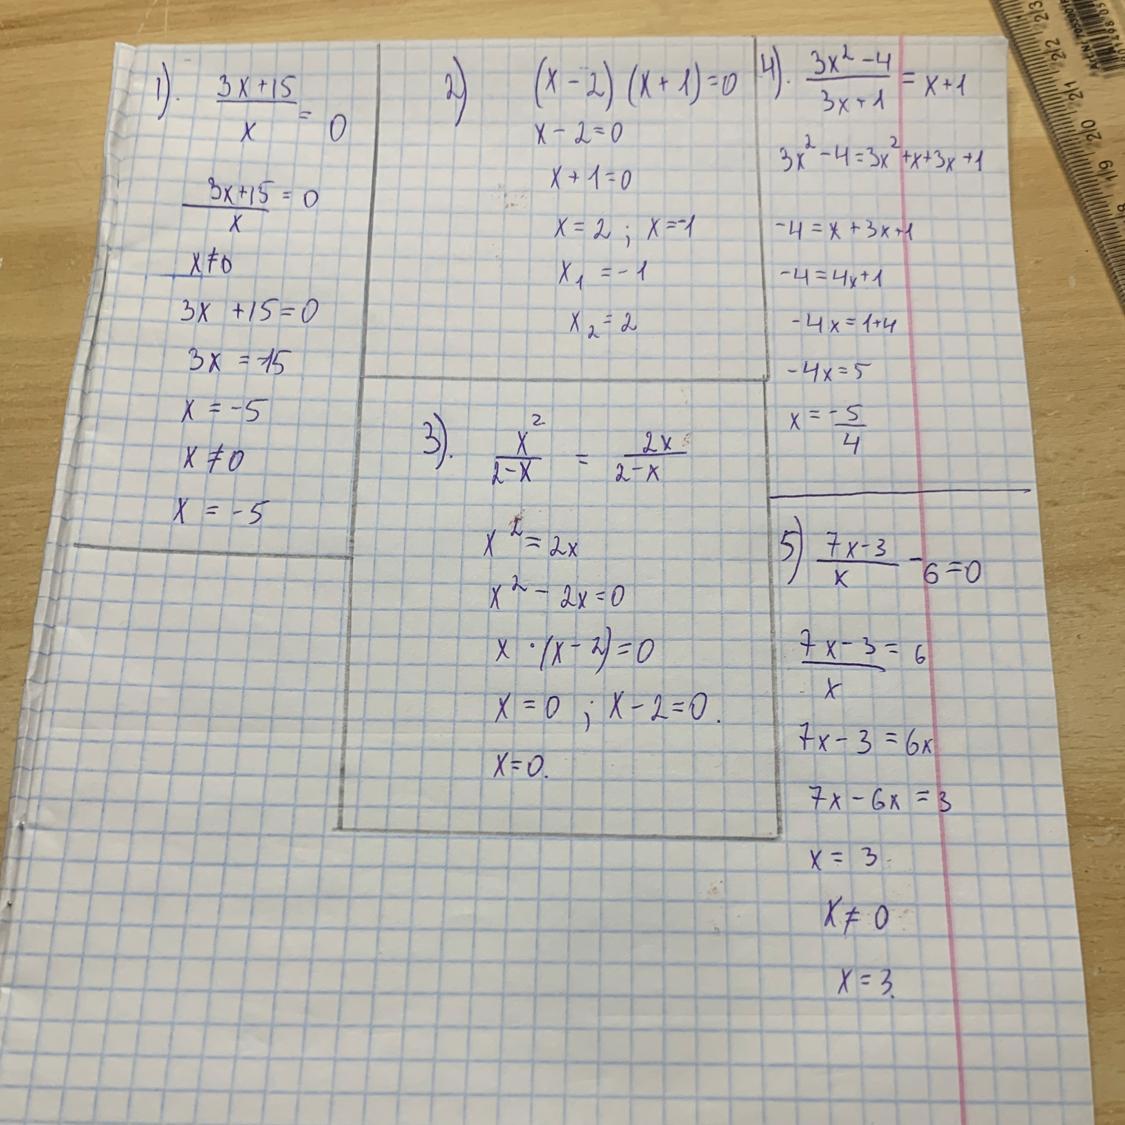 1). (3x+15)/x = 0
(3x+15)/x = 0
x≠0
3x +15=0
3x =-15
x = -5
x ≠0
x = -5
2) (x-2) (x+1)=0
x-2=0
x+1=0
x=2 ; x=-1
x₁ =-1
x₂=2
3). x²/(2-x) = 2x/(2-x)
x²=2x
x²-2x=0
x ·(x-2)=0
x=0 ; x-2=0.
x=0.
4). (3x²-4)/(3x+1) = x+1
3x²-4=3x²+x+3x+1
-4=x+3x+1
-4=4x+1
-4x=1+4
-4x=5
x=-5/4
5) (7x-3)/x -6=0
(7x-3)/x = 6
7x-3=6x
7x-6x=3
x=3.
x≠0
x=3.